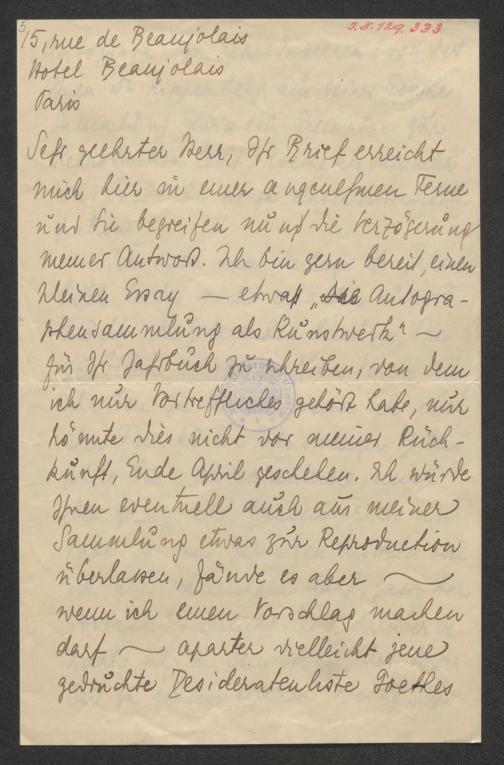 5
I.N. 129.333
15, rue de Beaujolais
Hotel Beaujolais
Paris
Sehr geehrter Herr, Ihr Brief erreicht
mich hier in einer angenehmen Ferne
und Sie begreifen nun die Verzögerung
meiner Antwort. Ich bin gern bereit, einen
kleinen Essay — etwa „Die Autogra-
phensammlung als Kunstwerk" —
für Ihr Jahrbuch zu schreiben, von dem
ich nur Vortreffliches gehört habe, nur
könnte dies nicht vor meiner Rück-
kunft, Ende April geschehen. Ich würde
Ihnen eventuell auch aus meiner
Sammlung etwas zur Reproduction
überlassen, fände es aber —
wenn ich einen Vorschlag machen
darf — aparter vielleicht jene
gedruckte Desideratenliste Goethes